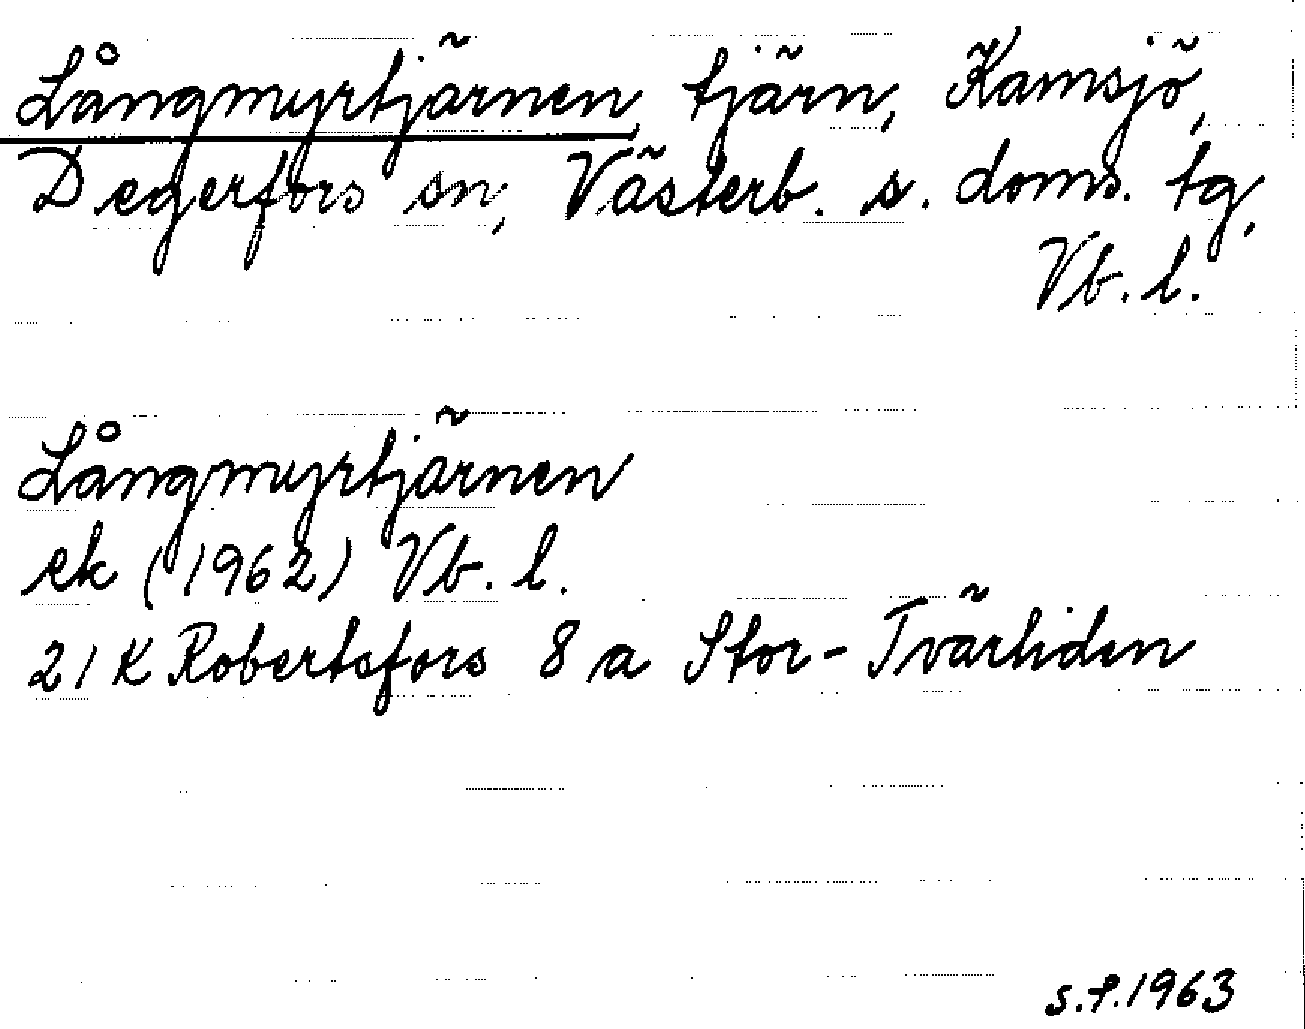 Långmyrtjärnen, tjärn, Kamsjö,
Degerfors sn, Västerb. s. doms. tg,
Vb. l.
Långmyrtjärnen
ek (1962) Vb. l.
21 K Robertsfors 8 a Stor-Tvärliden
s.f.1963